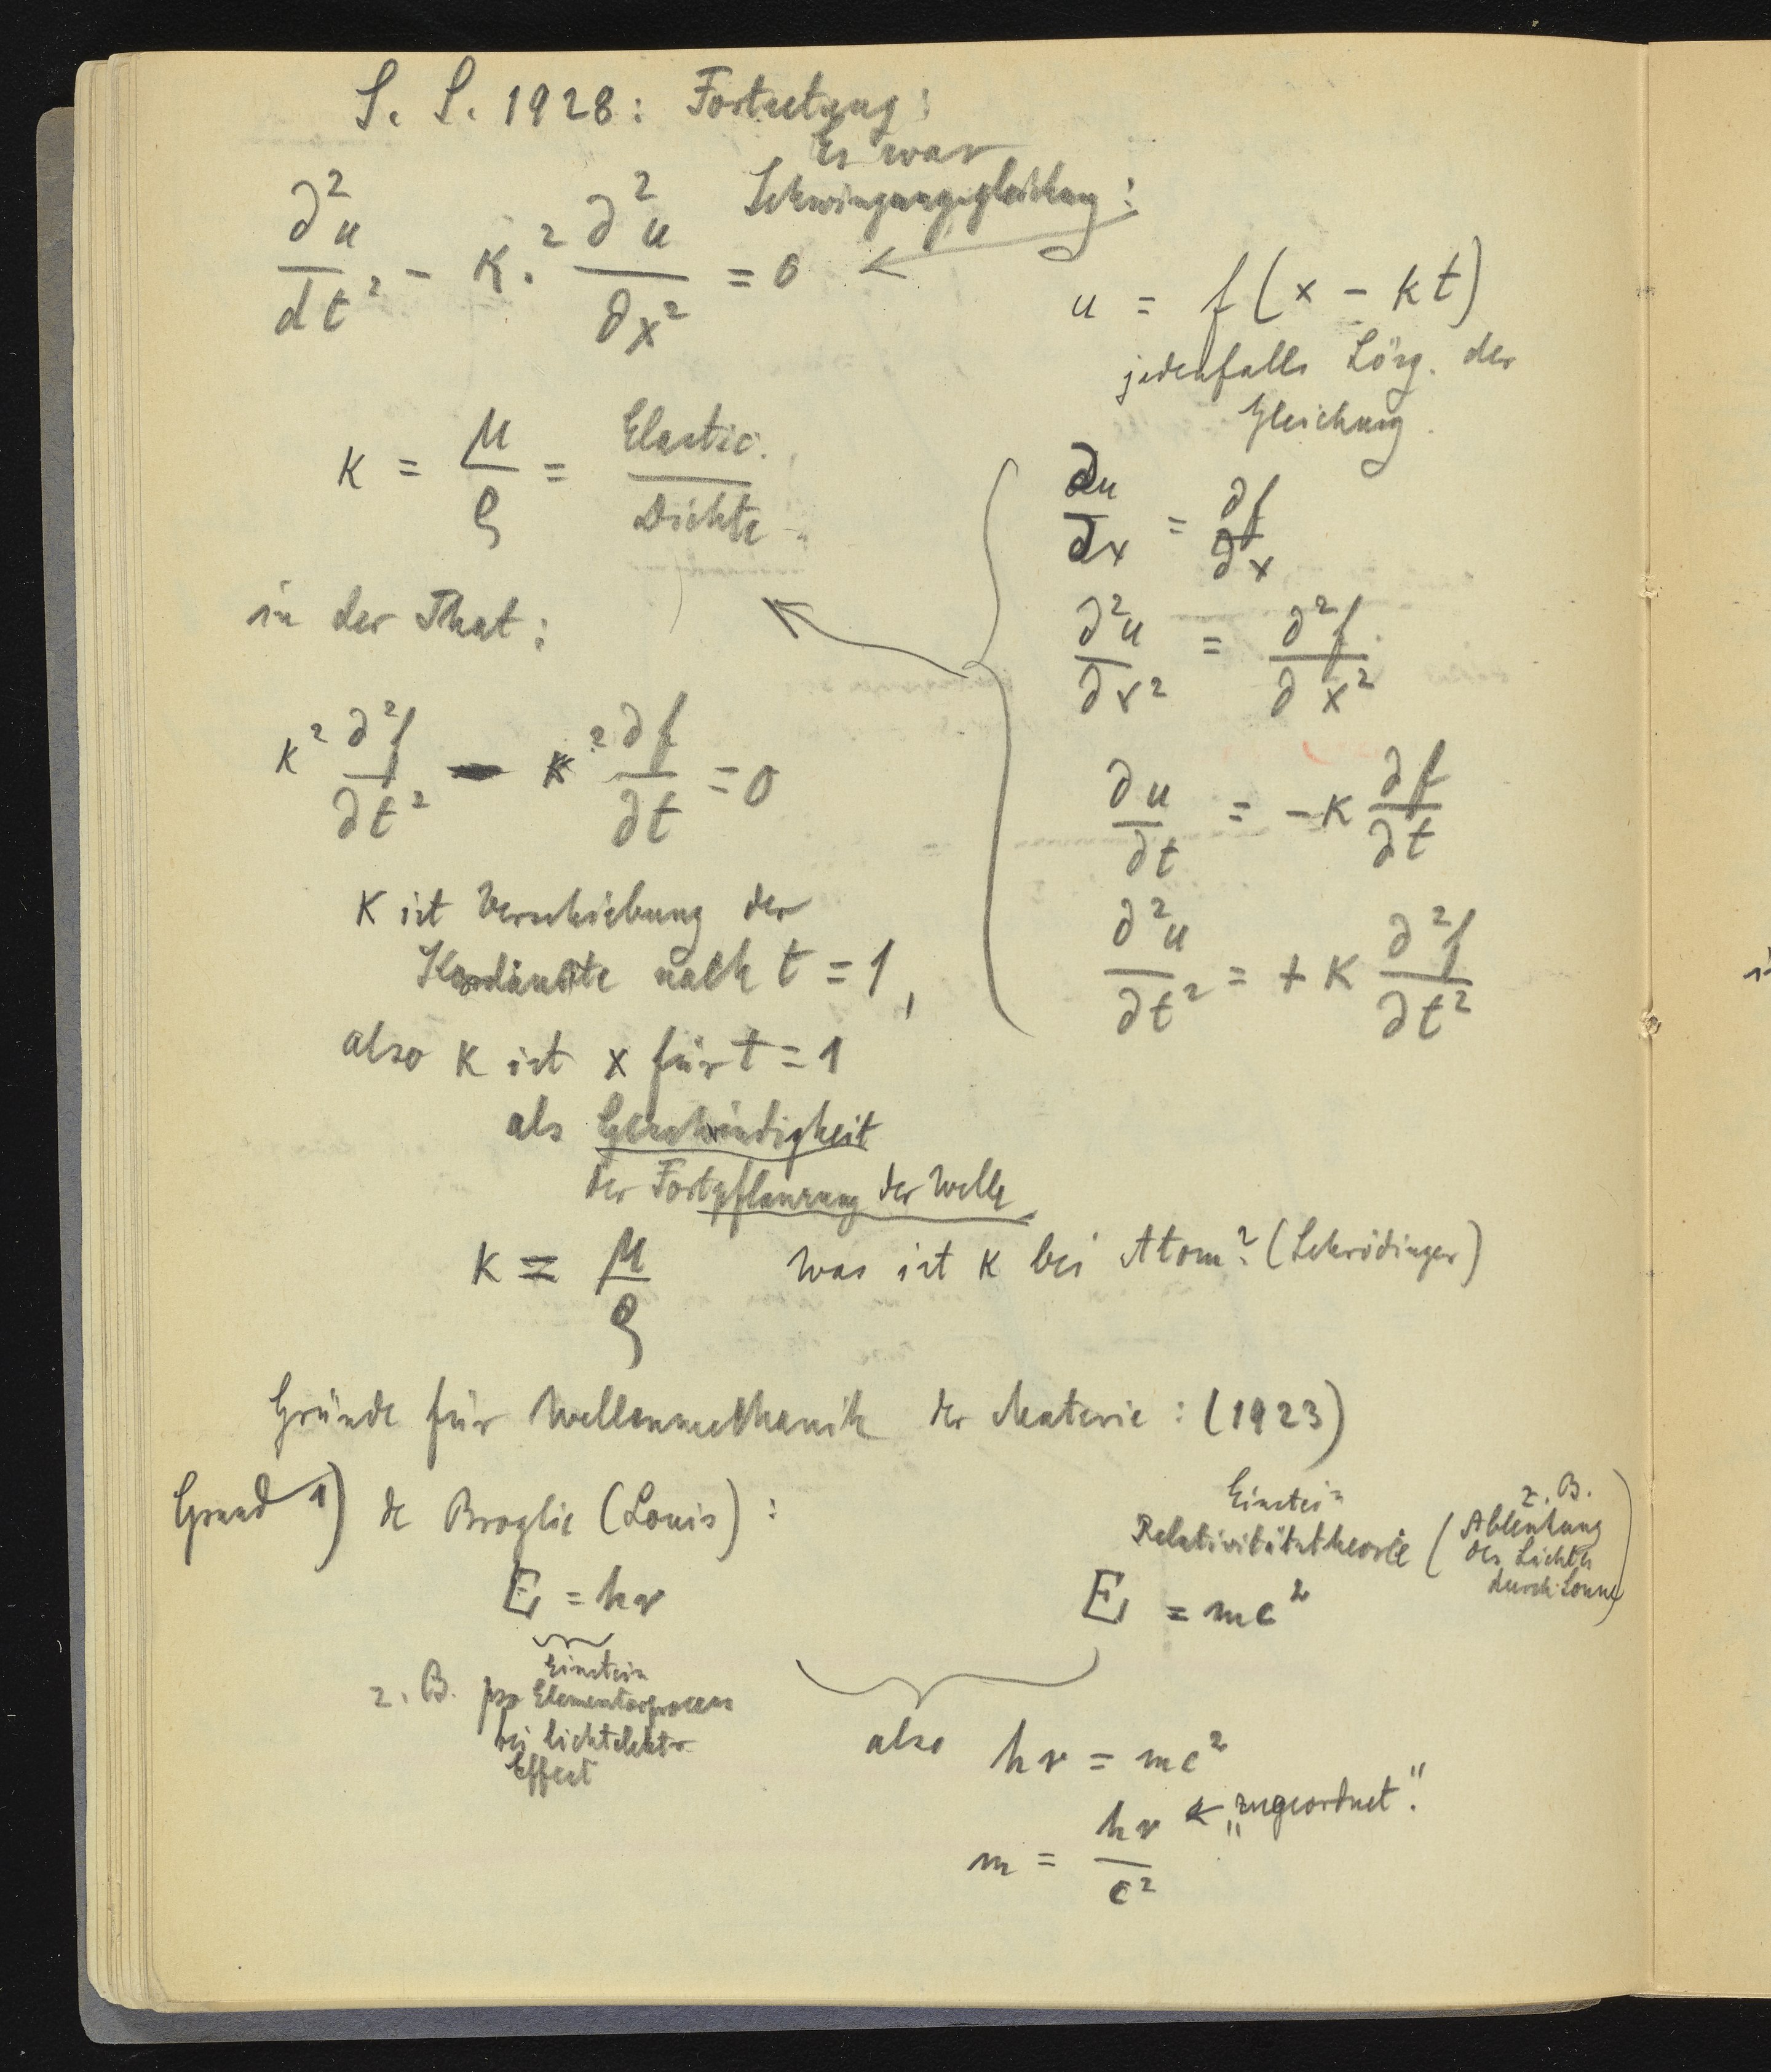 S. S. 1928: Fortsetzung:
Es war
Schwingungsgleichung:
∂²u/dt² - K.² ∂²u/∂x² = 0 ←
u = f(x - kt)
jedenfalls Lösg. der
Gleichung.
K = μ/ρ = Elastic./Dichte
∂u/∂x = ∂f/∂x
in der That:
∂²u/∂x² = ∂²f/∂x²
K² ∂²f/∂t² - K² ∂f/∂t = 0
∂u/∂t = -K ∂f/∂t
∂²u/∂t² = + K ∂²f/∂t²
K ist Verschiebung der
nach t = 1,
also K ist x für t = 1
als Geschwindigkeit
der Fortpflanzung der Welle
K = μ/ρ Was ist K bei Atom? (Schrödinger)
Gründe für Wellenmechanik der Materie: (1923)
Grund 1) de Broglie (Louis):
E = hν
Einstein
z. B. pro Elementarprocess
bei lichtelektr.
Effect
Einstein
Relativitätstheorie (z. B.
Ablenkung
des Lichtes
durch Sonne)
E = mc²
also hν = mc²
m = hν/c² ← „zugeordnet".